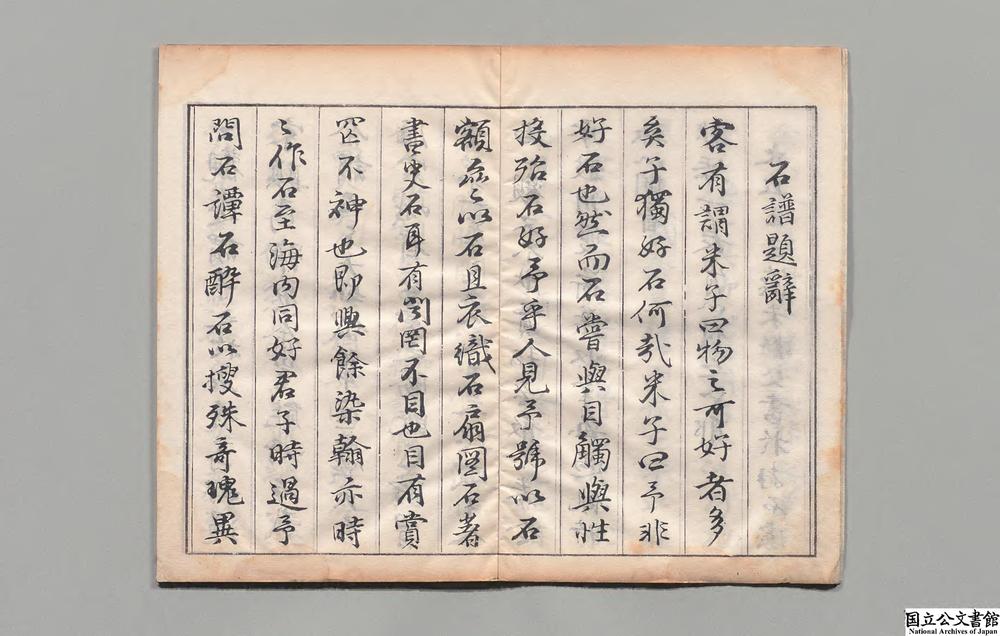 石譜題辭
客有謂米子曰物之可好者多
矣子獨好石何哉米子曰予非
好石也然而石嘗與目觸與性
投殆石好予乎人見予號以石
額亦以石且衣織石扇圖石著
書史石耳有聞罔不目也目有賞
罔不神也即興餘染翰亦時
時作石至海內同好君子時過予
問石譚石醉石以搜殊奇瑰異
国立公文書館
National Archives of Japan